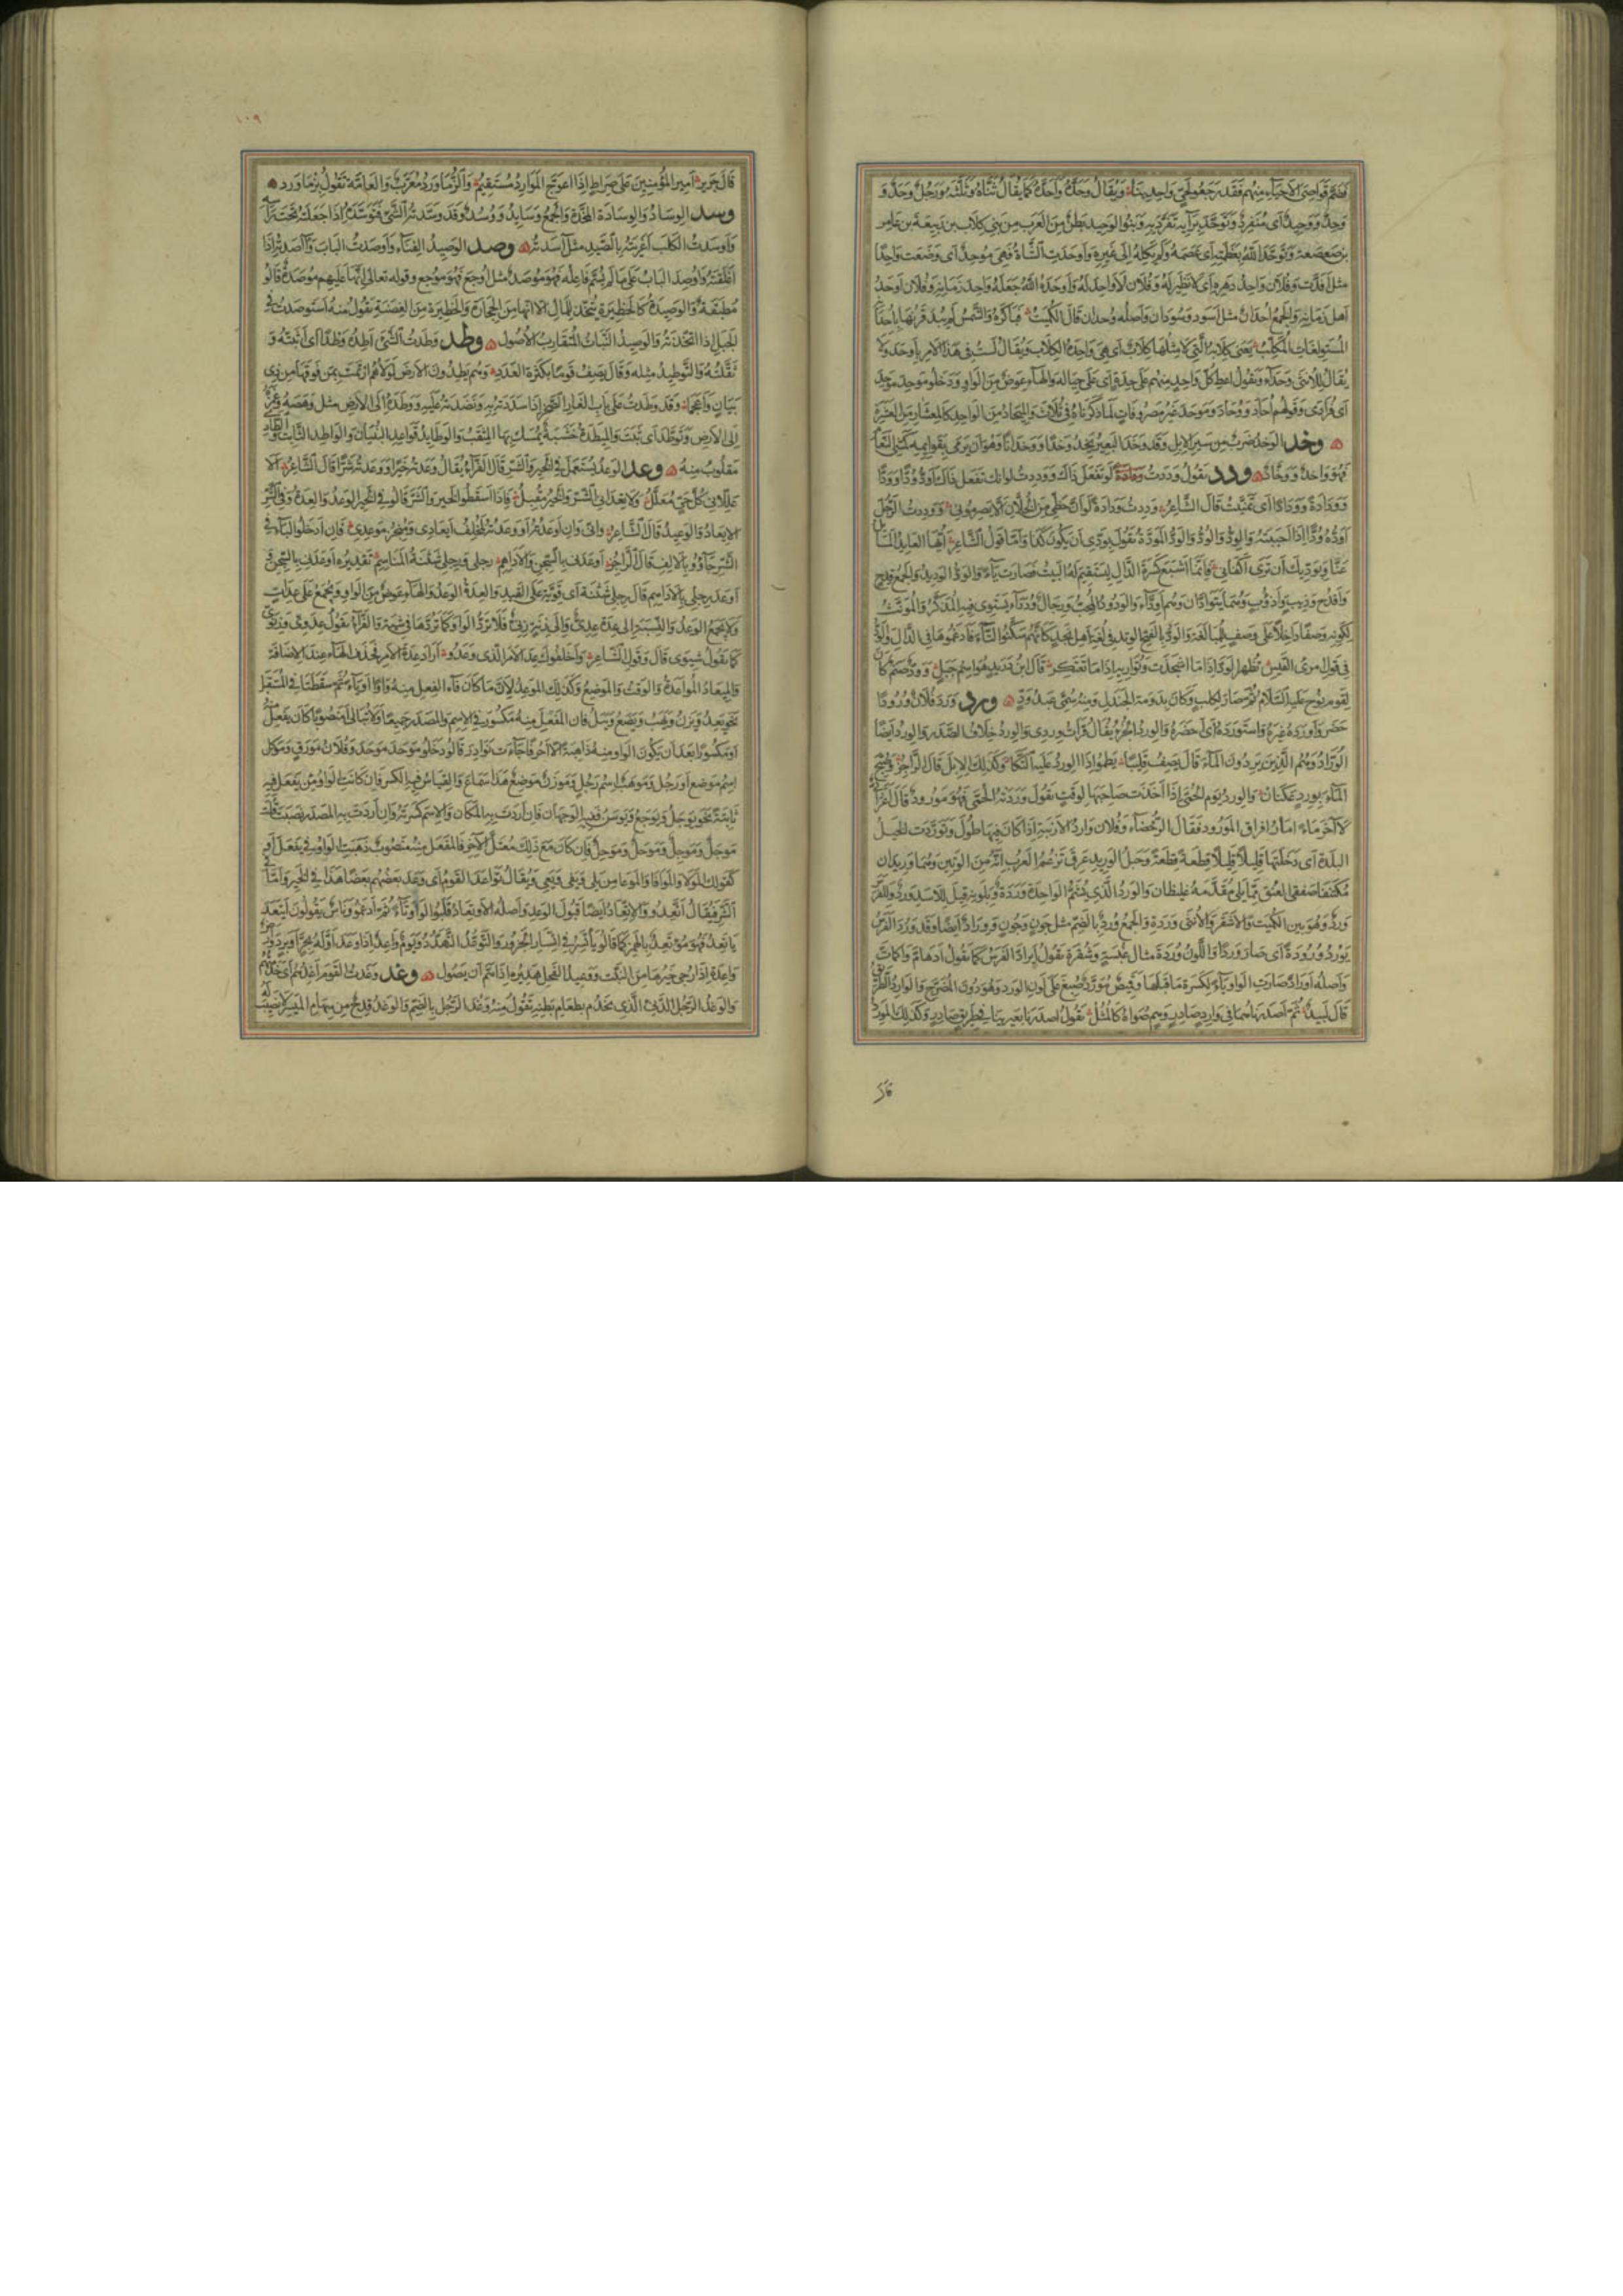 فضم قواصى الاحياء منهم فقد رجعوا كحى واحدينا ويقال وحد واحد كما يقال ثناه وثلثه ورجل وحد و
وحد ووحيد اى منفرد وتوحد برأيه تفرد به وبنوا الوحيد بطن من العرب من بنى كلاب بن ربيعة بن عامر
بن صعصعة وتوحده الله بعظمته اى عصمه ولم يكله الى غيره واوحدت الشاة فهى موحد اى وضعت واحدا
مثل افذت وفلان واحد دهره اى لا نظير له وفلان لا واحد له واوحده الله جعله واحد زمانه وفلان اوحد
اهل زمانه والجمع احدان مثل اسود وسودان واصله وحدان قال الكميت فباكره والشمس لم يبد قرنها باحدا
المستولغات المكلب يعنى كلابه التى لا مثلها كلاب اى هى واحدة الكلاب ويقال لست فى هذا الامر باوحد ولا
يقال للانثى وحداء وتقول اعط كل واحد منهم على حدة اى على حياله والهاء عوض من الواو ودخلوا موحد موحد
اى فرادى وقولهم احاد ووحاد وموحد غير مصروفات لما ذكرناه فى ثلاث والميحاد من الواحد كالمعشار من العشرة
وخد الوخد ضرب من سير الابل وقد وخد البعير يخد وخدا ووخدانا وهو ان يرمى بقوائمه كمشى النعا
فهو واخد ووخاد ودد تقول وددت لو تفعل ذاك ووددت لو انك تفعل ذاك اود ودا وودا
وودادة وودادا اى تمنيت قال الشاعر وددت ودادة لو ان حظى من الخلان الا يصرمونى ووددت الرجل
اوده ودا اذا احببته والود والود والود المودة تقول بودى ان يكون كذا واما قول الشاعر ايها العايد المسائل
عنا وبوديك ان ترى اكفانى فانما اشبع كسرة الدال ليستقيم له البيت فصارت ياء والود الوديد والجمع اود مثل قدح
واقدح وذيب واذؤب وهما يتوادان وهم اوداء والودود المحب ورجال ودداء يستوى فيه المذكر والمؤنث
لكونه وصفا داخلا على وصف للمبالغة والود بالفتح الوتد فى لغة اهل نجد كانهم سكنوا التاء فادغموها فى الدال والود
فى قول امرئ القيس تظهر الود اذا ما اشجذت وتواريه اذا ما تعتكر قال ابن دريد هو اسم جبل وود صنم كان
لقوم نوح عليه السلام ثم صار لكلب وكان بدومة الجندل ومنه سمى عبد ود ورد ورد فلان ورودا
حضر واورده غيره واستورده اى احضره والورد الجزء يقال قرات وردى والورد خلاف الصدر والورد ايضا
الوراد وهم الذين يردون الماء قال يصف قليبا يطمو اذا الورد عليه التكا وكذلك الابل قال الراجز وصبح
الماء بورد عكنان والورد يوم الحمى اذا اخذت صاحبها لوقت تقول وردته الحمى فهو مورود قال اعرابى
لاخر ما امار افراق المورود فقال الرحضاء وفلان وارد الارنبة اذا كان فيها طول وتوردت الخيل
البلدة اى دخلتها قليلا قليلا قطعة قطعة وحبل الوريد عرق تزعم العرب انه من الوتين وهما وريدان
مكتنفا صفقى العنق مما يلى مقدمه غليظان والورد الذى يشم الواحدة وردة وبلونه قيل للاسد ورد وللفرس
ورد وهو بين الكميت والاشقر والانثى وردة والجمع ورد بالضم مثل جون وجون ووراد ايضا وقد ورد الفرس
يورد ورودة اى صار وردا واللون وردة مثال غبسة وشقرة تقول ايراد الفرس كما تقول ادهام واكمات
واصله اوراد صارت الواو ياء لكسرة ما قبلها وقميص مورد صبغ على لون الورد وهو دون المضرج والوارد الطريق
قال لبيد ثم اصدرناهما فى وارد صادر وهم صواه كالمثل يقول اصدرنا بعيرينا فى طريق صادر وكذلك المورد
قال
١٠٩
قال جرير امير المؤمنين على صراط اذا اعوج الموارد مستقيم والزماورد معرب والعامة تقول بزماورد
وسد الوساد والوسادة المخدة والجمع وسايد ووسد وقد وسدته الشئ فتوسده اذا جعله تحت راسه
واوسدت الكلب اغريته بالصيد مثل آسدته وصد الوصيد الفناء واوصدت الباب وآصدته اذا
اغلقته واوصد الباب على ما لم يسم فاعله فهو موصد مثل اوجع فهو موجع وقوله تعالى انها عليهم موصدة قالوا
مطبقة والوصيدة كالحظيرة تتخذ للمال الا انها من الحجارة والحظيرة من الغصنة تقول منه استوصدت فى
الجبل اذا اتخذته والوصيد النبات المتقارب الاصول وطد وطدت الشئ اطده وطدا اى اثبته و
ثقلته والتوطيد مثله وقال يصف قوما بكثرة العدد وهم يطدون الارض لولاهم ارتمت بمن فوقها من ذى
بيان واعجما وقد وطدت على باب الغار الصخر اذا سددته به ونضدته عليه ووطده الى الارض مثل وهصه وغمزه
الى الارض وتوطد اى ثبت والميطدة خشبة يمسك بها المثقب والوطايد قواعد البنيان والواطد الثابت والطادى
مقلوب منه وعد الوعد يستعمل فى الخير والشر قال الفراء يقال وعدته خيرا ووعدته شرا قال الشاعر الا
عللانى كل حى معلل ولا تعدانى الشر والخير مقبل فاذا اسقطوا الخير والشر قالوا فى الخير الوعد والعدة وفى الشر
الايعاد والوعيد قال الشاعر وانى وان اوعدته او وعدته لمخلف ايعادى ومنجز موعدى فان ادخلوا الباء فى
الشر جاؤوا بالالف قال الراجز اوعدنى بالسجن والاداهم رجلى ورجلى شثنة المناسم تقديره اوعدنى بالسجن و
اوعد رجلى بالاداهم قال رجلى شثنة اى قوية على القيد والعدة الوعد والهاء عوض من الواو ويجمع على عدات
ولا يجمع الوعد والنسبة الى عدة عدى والى زنة زنى فلا ترد الواو كما تردها فى شية والفراء يقول عدوى وزنوى
كما تقول شيوى قال وقول الشاعر واخلفوك عد الامر الذى وعدوا اراد عدة الامر فحذف الهاء عند الاضافة
والميعاد المواعدة والوقت والموضع وكذلك الموعد لان ما كان فاء الفعل منه واوا او ياء ثم سقطتا فى المستقبل
نحو يعد ويزن ويهب ويضع ويئل فان المفعل منه مكسور فى الاسم والمصدر جميعا ولا تبالى منصوبا كان يفعل منه
او مكسورا بعد ان يكون الواو منه ذاهبة الا احرفا جاءت نوادر قالوا دخلوا موحد موحد وفلان بن مورق وموكل
اسم موضع او رجل وموهب اسم رجل وموزن موضع هذا سماع والقياس فيه الكسر فان كانت الواو من يفعل فيه
ثابتة نحو يوجل ويوجع ويوسن ففيه الوجهان فان اردت به المكان والاسم كسرته وان اردت به المصدر نصبت قلت
موجل وموجل وموحل وموحل فان كان مع ذلك معتل الآخر فالمفعل منه منصوب ذهبت الواو فى يفعل او
كقولك المولا والموافا والموعا من يلى ويفى ويعى ويقال تواعد القوم اى وعد بعضهم بعضا هذا فى الخير واما فى
الشر فيقال اتعدوا والاتعاد ايضا قبول الوعد واصله الاوتعاد قلبوا الواو تاء ثم ادغموا وناس يقولون ايتعد
ياتعد فهو مؤتعد بالهمز كما قالوا ياتسر فى ايسار الجزور والتوعد التهدد ويوم واعد اذا وعد اوله بحر او برد وارض
واعدة اذا رجى خيرها من النبت ووعيد الفحل هديره اذا هم ان يصول وغد وغدت القوم اغدهم اى خدمتهم
والوغد الرجل الدنى الذى يخدم بطعام بطنه تقول منه وغد الرجل بالضم والوغد قدح من سهام الميسر لا نصيب له